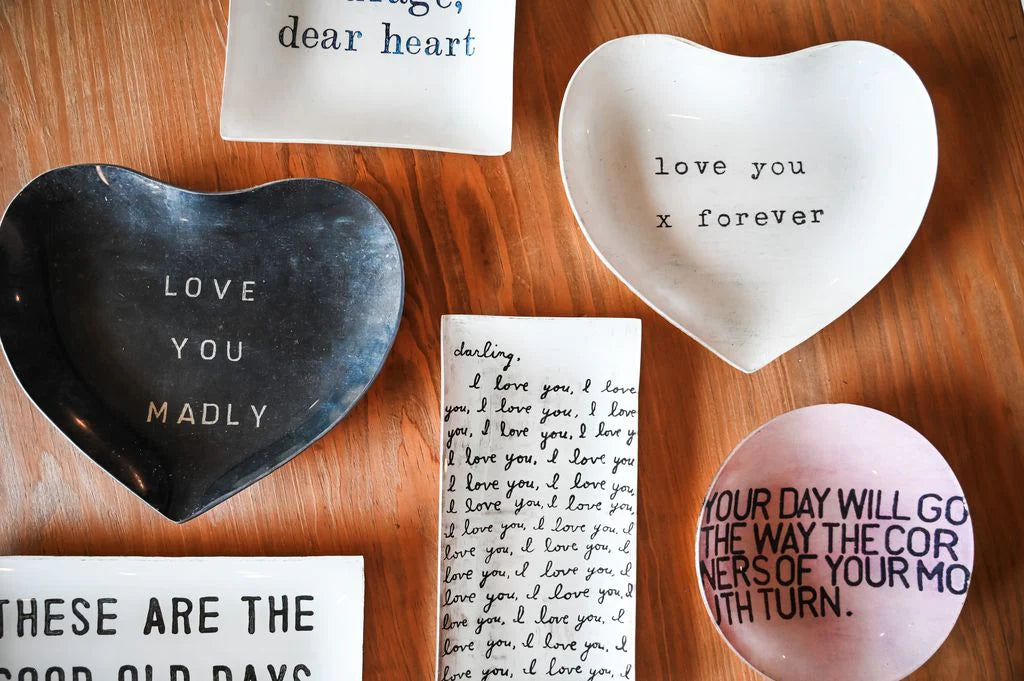 dear heart
love you
x forever
LOVE
YOU
MADLY
darling,
I love you, I love
you, I love you, I love
you, I love you, I love y
I love you, I love you
I love you, I love you,
I love you, I love you,
I love you, I love you, I
love you, I love you, I
love you, I love you, I
love you, I love you, I
love you, I love you, I
love you, I love you, I
love you, I love you,
YOUR DAY WILL GO
THE WAY THE COR
NERS OF YOUR MO
UTH TURN.
THESE ARE THE
GOOD OLD DAYS